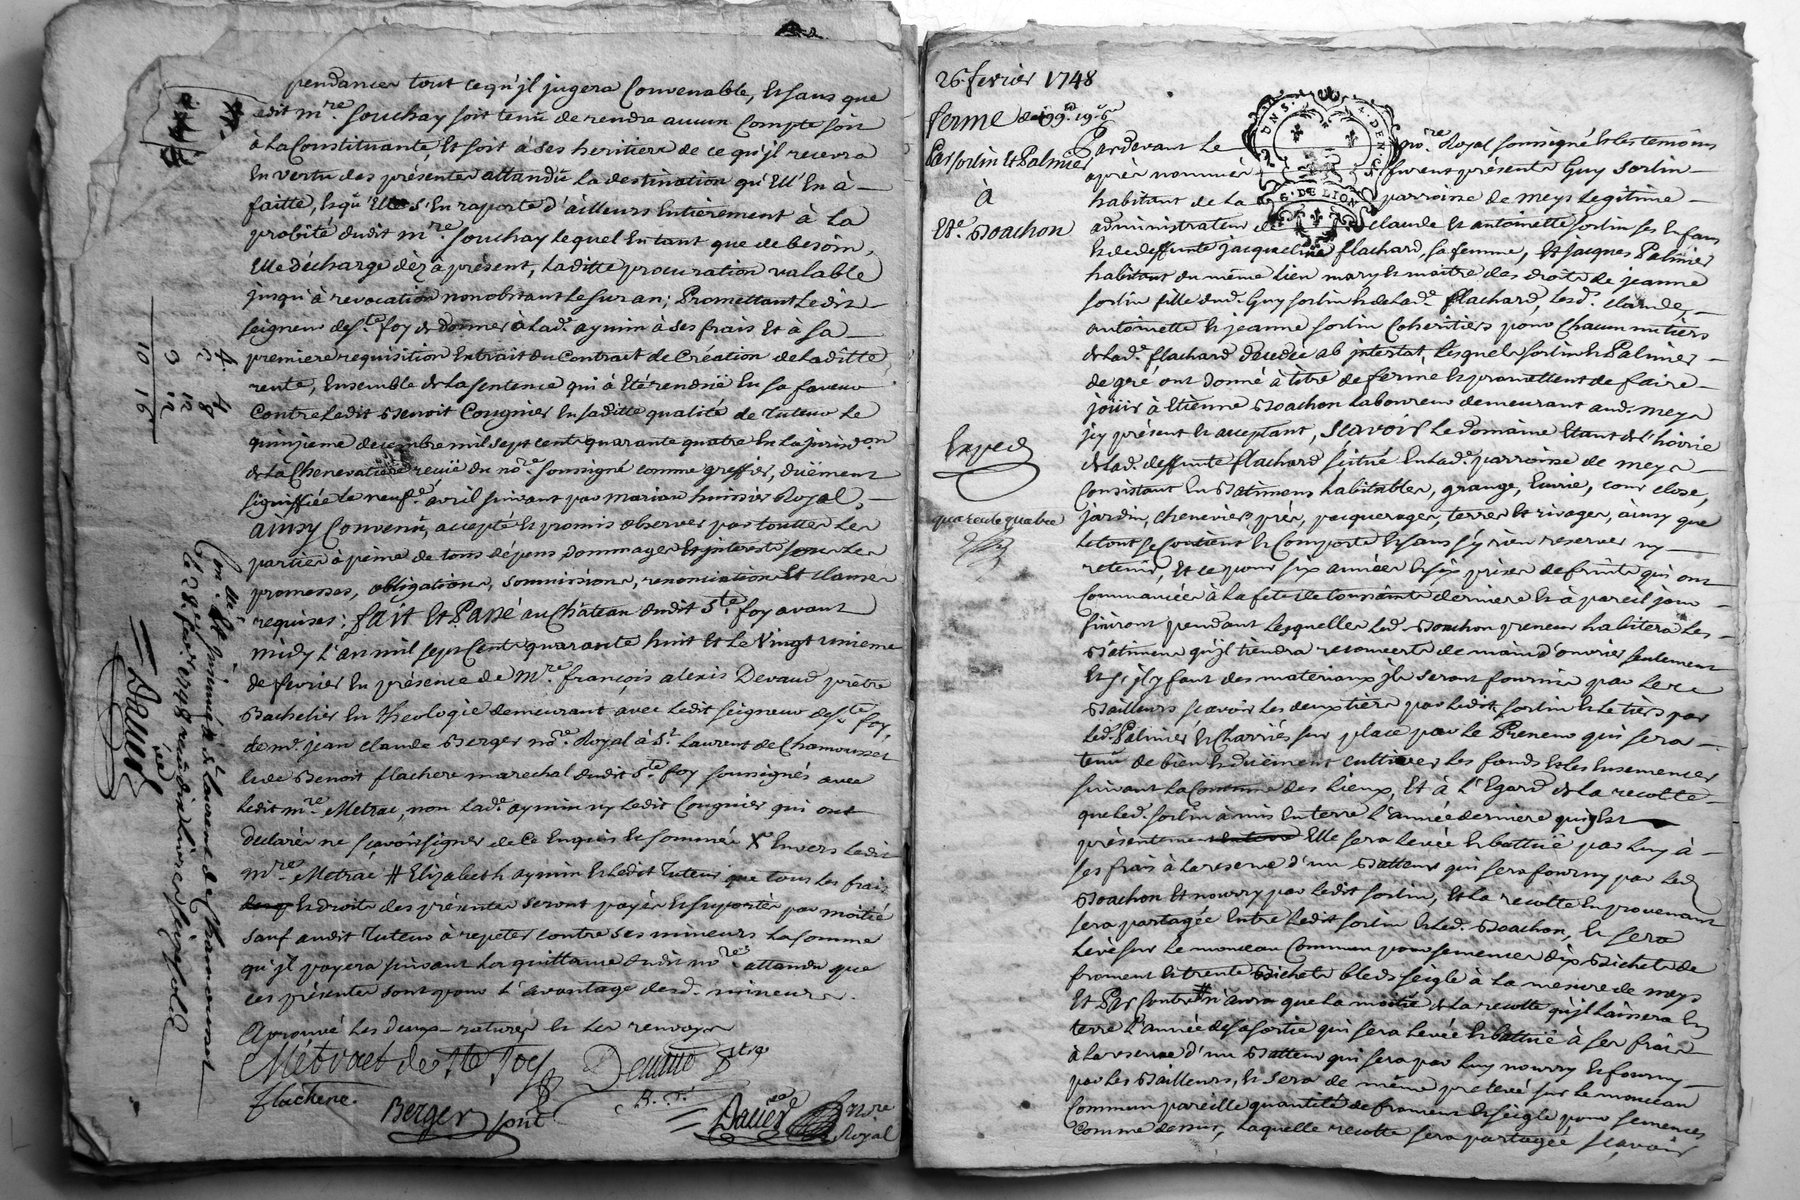 pendances tout ce qu'jl jugera Convenable, Et sans que
ledit mre. souchay soit tenu de rendre aucun Compte soit
à la Constituante, Et soit à ses heritiers de ce qu'jl recevra
En vertu des présentes attandû la destination qu'Ell' En à
faitte, Es qu'Elle s'En raporte d'ailleurs Entièrement à la
probité dudit mre. souchay lequel En tant que de besoin,
Elle décharge dès à présent, laditte procuration valable
jusqu'à revocation nonobstant le sur an; Promettant ledit
seigneur de ste. foy de donner à lad. aymin à ses frais Et à sa
premiere requisition Extrait du Contract de Création de laditte
rente, Ensemble de la sentence qui à Eté rendüe En sa faveur
Contre ledit Benoit Cougnier En saditte qualité de Tuteur le
quinzieme decembre mil sept cent quarante quatre En la jurisdon
de la Chenevatiere reçuë du nore. soussigné comme greffier, düement
signiffiée le neufe. avril suivant par marian huissier Royal,
ainsy Convenû, accepté Et promis observer par touttes les
parties à peine de tous dépens dommages Et jnterests sous les
promesses, obligations, soumissions, renonciations Et clauses
requises; fait Et Passé au Château dudit ste. foy avant
midy l'an mil sept Cent quarante huit Et le Vingt unieme
de fevrier En présence de Mre. françois alexis Devaud prêtre
Bachelier En theologie demeurant avec ledit seigneur de ste. foy,
de mr. jean claude Berger nore. Royal à st. Laurent de Chamousset
Et de Benoit flachere marechal dudit ste. foy soussignés avec
ledit mre. Metrae, non lad. aymin ny ledit Cougnier qui ont
declarés ne sçavoir signer de ce Enquis Et sommés X Envers ledit
mre. Metrae # Elizabeth aymin Et ledit Tuteur que tous les frais
Et droits des présentes seront payés Et suportés par moitié
sauf audit Tuteur à repeter contre ses mineurs la somme
qu'jl payera suivant la quittance dudit nore. attandu que
ces présentes sont pour l'avantage desd. mineurs.
Aprouvé les deux ratures Et les renvoys
Métraet de Ste Foy Devaud ptre
flachere. Berger B. T.
Dauer Nore Royal
4 4
12
3 12
10 16
Con. à st. Laurent de Chamousset
le 28. fevrier 1748
Dauer
26. fevrier 1748
ferme
Par sorlin Et Palmier
à
Ete. Boachon
Exped
quarente quatre
UN S. 4. DEN.
G. DE LION
Pardevant le nore. Royal soussigné Et les temoins
après nommés furent présents Guy sorlin
habitant de la parroisse de meys legitime
administrateur de claude Et antoinette sorlin ses Enfans
Et de deffunte jacqueline flachard, sa femme, Et jacques Palmier
habitant du même lieu mary Et maître des droits de jeanne
sorlin fille dud. Guy sorlin Et de lad. flachard, lesd. claude
antoinette Et jeanne sorlin Coheritiers pour Chacun un tiers
de lad. flachard decedée ab jntestat, lesquels sorlin Et Palmier
de gré ont donné à titre de ferme Et promettent de faire
joüir à Etienne Boachon laboureur demeurant aud. meys
jcy présent Et acceptant, sçavoir le domaine Etant de l'hoirie
de lad. deffunte flachard scitué En lad. parroisse de meys
Consistant En Batimens habitables, grange, Ecurie, cour close,
jardin, chenevier, prés, pacquerages, terres Et rivages, ainsy que
le tout se contient Et Comporte Et sans s'y rien reserver ny
retenir, Et ce pour six années Et six prises de fruits qui ont
Commancées à la fete de toussaints derniere Et à pareil jour
finiront pendant lesquelles led. Boachon preneur habitera les
Batimens qu'jl tiendra recouverts de main d'ouvrier seulement
Et s'jl y faut des materiaux jls seront fournis par les
Bailleurs sçavoir les deux tiers par ledit sorlin Et le tiers par
led. Palmier Et charriés sur place par le Preneur qui sera
tenû de bien Et düement cultiver les fonds Et les Ensemencer
suivant la Coutume des lieux, Et à l'Egard de la recolte
que led. sorlin à mis En terre l'année derniere qui Est
présentement Elle sera levée Et battüe par luy à
ses frais à la reserve d'un Batteur qui sera fourny par led.
Boachon Et nourry par ledit sorlin, Et la recolte En provenant
sera partagée Entre ledit sorlin Et led. Boachon, Et sera
levé sur le monceau Commun pour semences dix Bichets de
froment Et trente Bichets bled seigle à la mesure de meys
Et Par Contre # n'aura que la moitié de la recolte qu'jl laissera En
terre l'année de sa sortie qui sera levée Et battüe à ses frais
à la reserve d'un Batteur qui sera par luy nourry Et fourny
par les Bailleurs, Et sera de même prelevé sur le monceau
Commun pareille quantité de froment Et seigle pour semences
Comme dessus, laquelle recolte sera partagée sçavoir